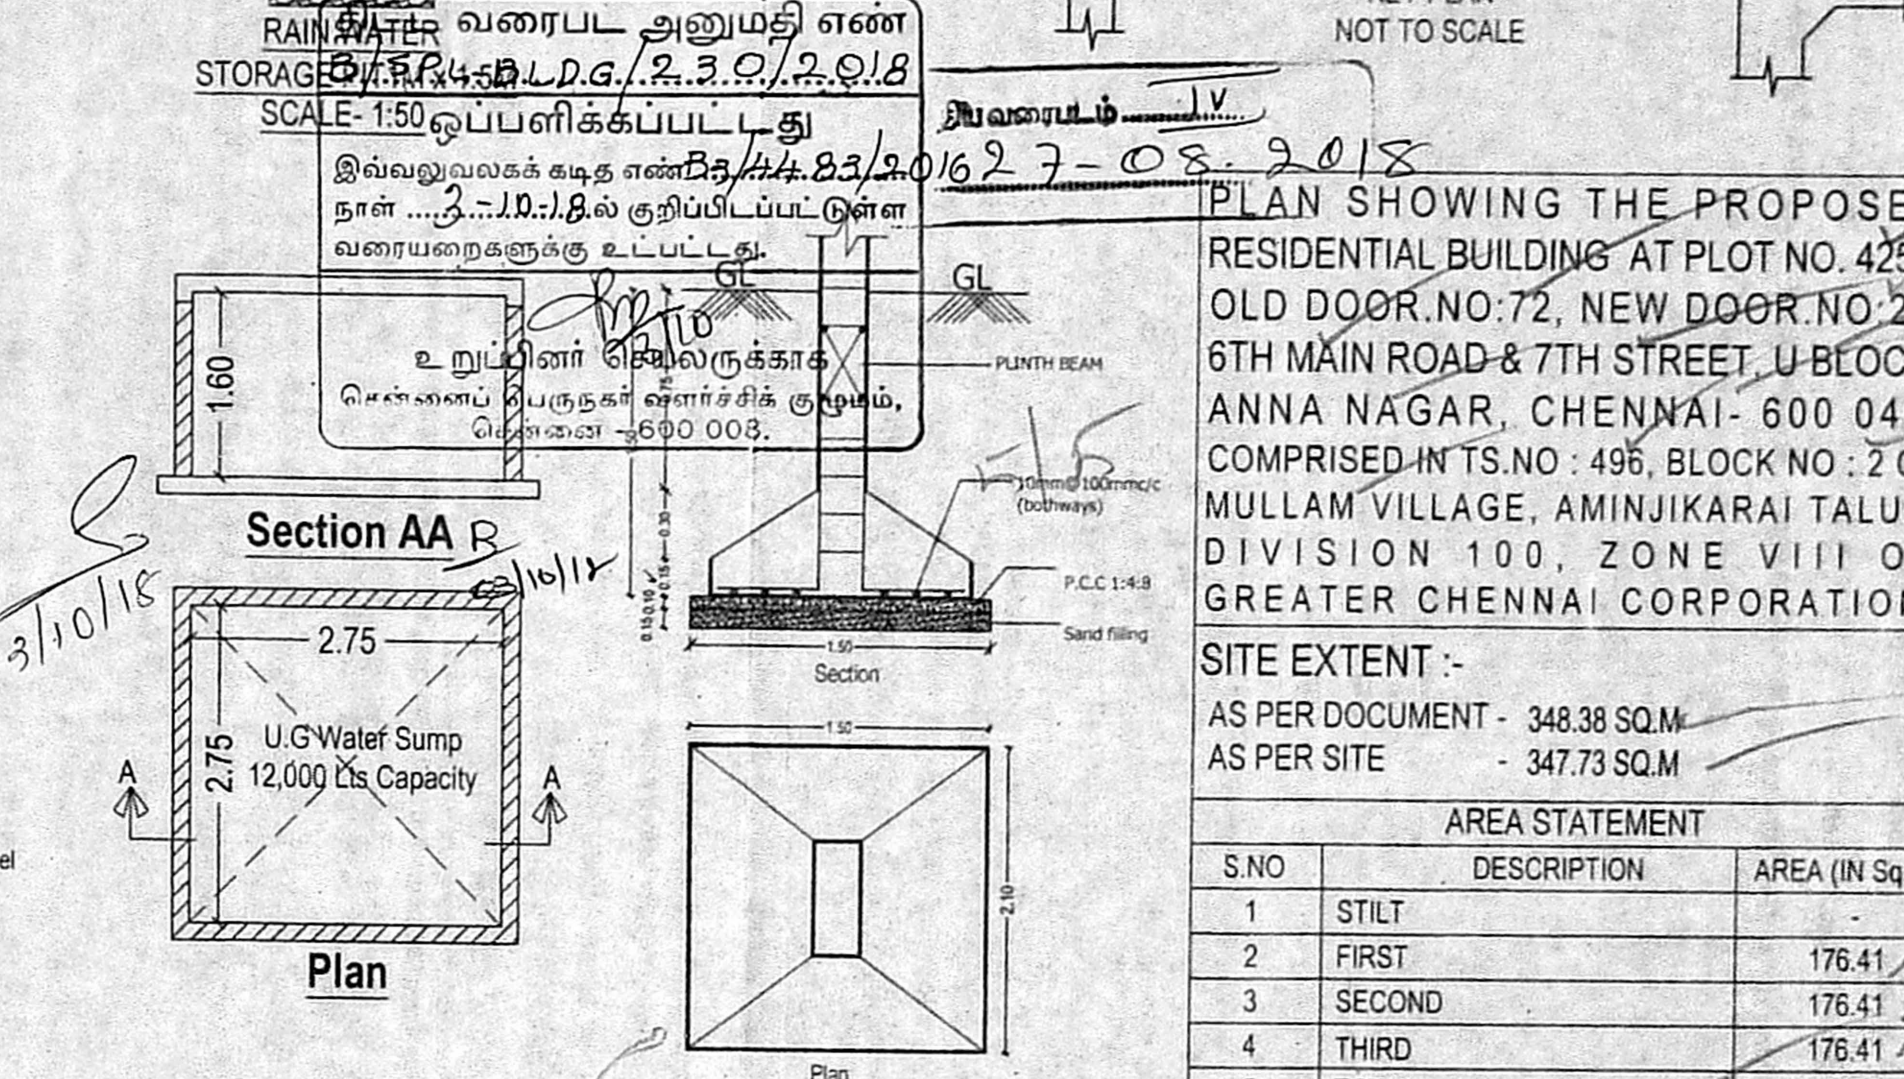 RAIN WATER
SCALE- 1:50
வரைபட அனுமதி எண்
B/SPL-BLDG/230/2018
ஒப்பளிக்கப்பட்டது
இவ்வலுவலகக் கடித எண் B3/4483/2016
நாள் 3-10-18.ல் குறிப்பிடப்பட்டுள்ள
வரையறைகளுக்கு உட்பட்டது.
உறுப்பினர் செயலருக்காக
சென்னைப் பெருநகர் வளர்ச்சிக் குழுமம்,
சென்னை - 600 008.
IV
27-08-2018
NOT TO SCALE
1.60
Section AA
3/10/18
2.75
2.75
U.G Water Sump
12,000 Lts Capacity
A
A
Plan
el
GL
GL
PLINTH BEAM
10mm@100mmc/c
(bothways)
P.C.C 1:4:8
Sand filling
0.30
0.15
1.50
Section
1.50
2.10
Plan
PLAN SHOWING THE PROPOSE
RESIDENTIAL BUILDING AT PLOT NO. 425
OLD DOOR.NO:72, NEW DOOR.NO:2
6TH MAIN ROAD & 7TH STREET, U BLOC
ANNA NAGAR, CHENNAI- 600 04
COMPRISED IN TS.NO : 496, BLOCK NO : 2
MULLAM VILLAGE, AMINJIKARAI TALU
DIVISION 100, ZONE VIII O
GREATER CHENNAI CORPORATIO
SITE EXTENT :-
AS PER DOCUMENT - 348.38 SQ.M
AS PER SITE - 347.73 SQ.M
AREA STATEMENT
S.NO DESCRIPTION AREA (IN Sq
1 STILT -
2 FIRST 176.41
3 SECOND 176.41
4 THIRD 176.41